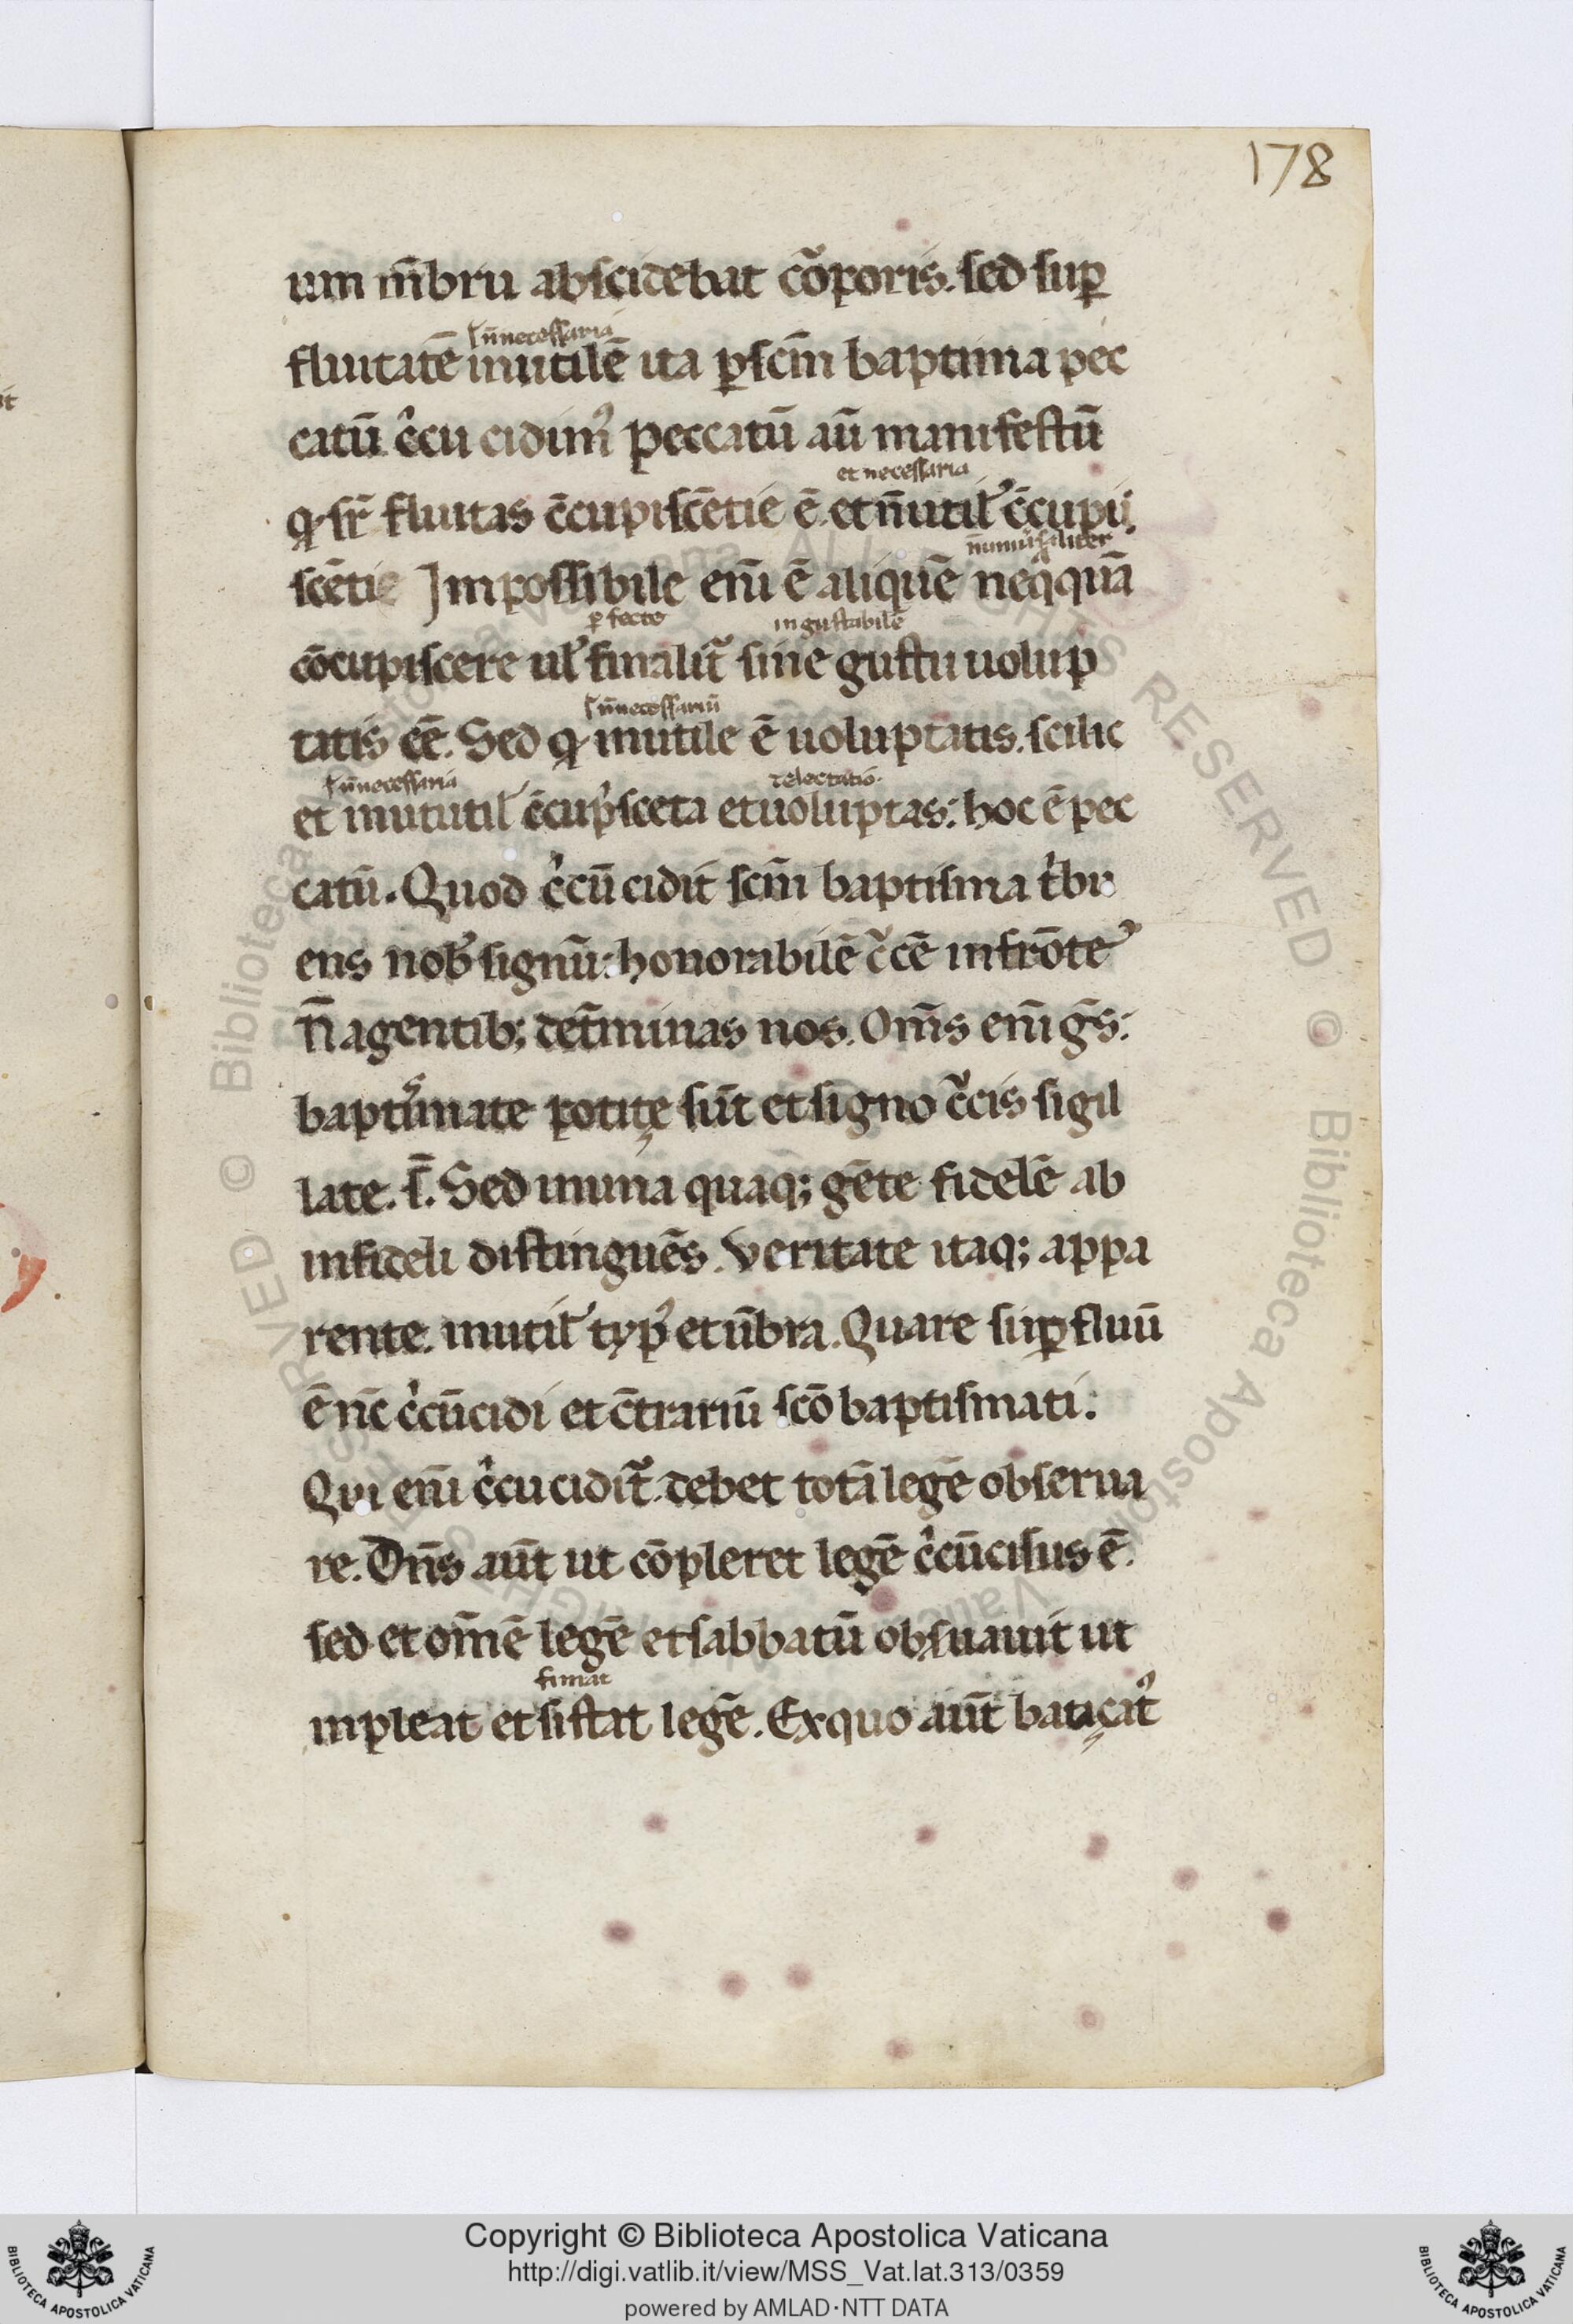 178
um m̄bru abscidebat cōꝛporis. sed suꝑ
ſ n̄necessaria
fluitatē inutilē ita ꝑ scm̄ baptima pec
catū c̓cu cidim᾽ peccatū aū manifestū
et necessaria
q. sr̄ fluitas c̄cupiscētie ē. et n̄util᾽ c̄cupii
n̄uniu᾽saliter
scētie Impossibile eni̅ ē aliquē neq̄quā
ꝑfecte ingustabilē
cōcupiscere ul᾽ finalit᾽ sine gustu uolup
ſ n̄necessariū
tatis ēē. Sed q inutile ē uoluptatis. scilic
ſ n̄necessaria delectatio.
et inututil᾽ c̄cup᾽sceta et uoluptas: hoc ē pec
catū. Quod c̓cū cidit scm̄ baptisma t᾽bu
ens nob᾽ signū: honorabilē c᾽cē in frōte᾽
n̄ agentib; det̄minas nos. Om̄s eni̅ gs̄:
bapt᾽mate potitę sūt et signo c᾽cis sigil
late. ſ̄. Sed inuna quaq; gēte fidelē ab
infideli distinguēs. Veritate itaq; appa
rente. inutil᾽ typ᾽ et ūbra. Quare suꝑfluū
ē nc̄ c̓cūcidi et c̄trariū scō baptismati:
Qui eni̅ c̓cu cidit᾽. debet totā legē obserua
re. Dn̄s aūt ut cōpleret legē c̓cūcisus ē.
sed et om̄ē legē et sabbatū obẜuauit ut
firmat
inpleat et sistat legē. Ex quo aūt bataçat᾽
Copyright © Biblioteca Apostolica Vaticana
http://digi.vatlib.it/view/MSS_Vat.lat.313/0359
powered by AMLAD·NTT DATA